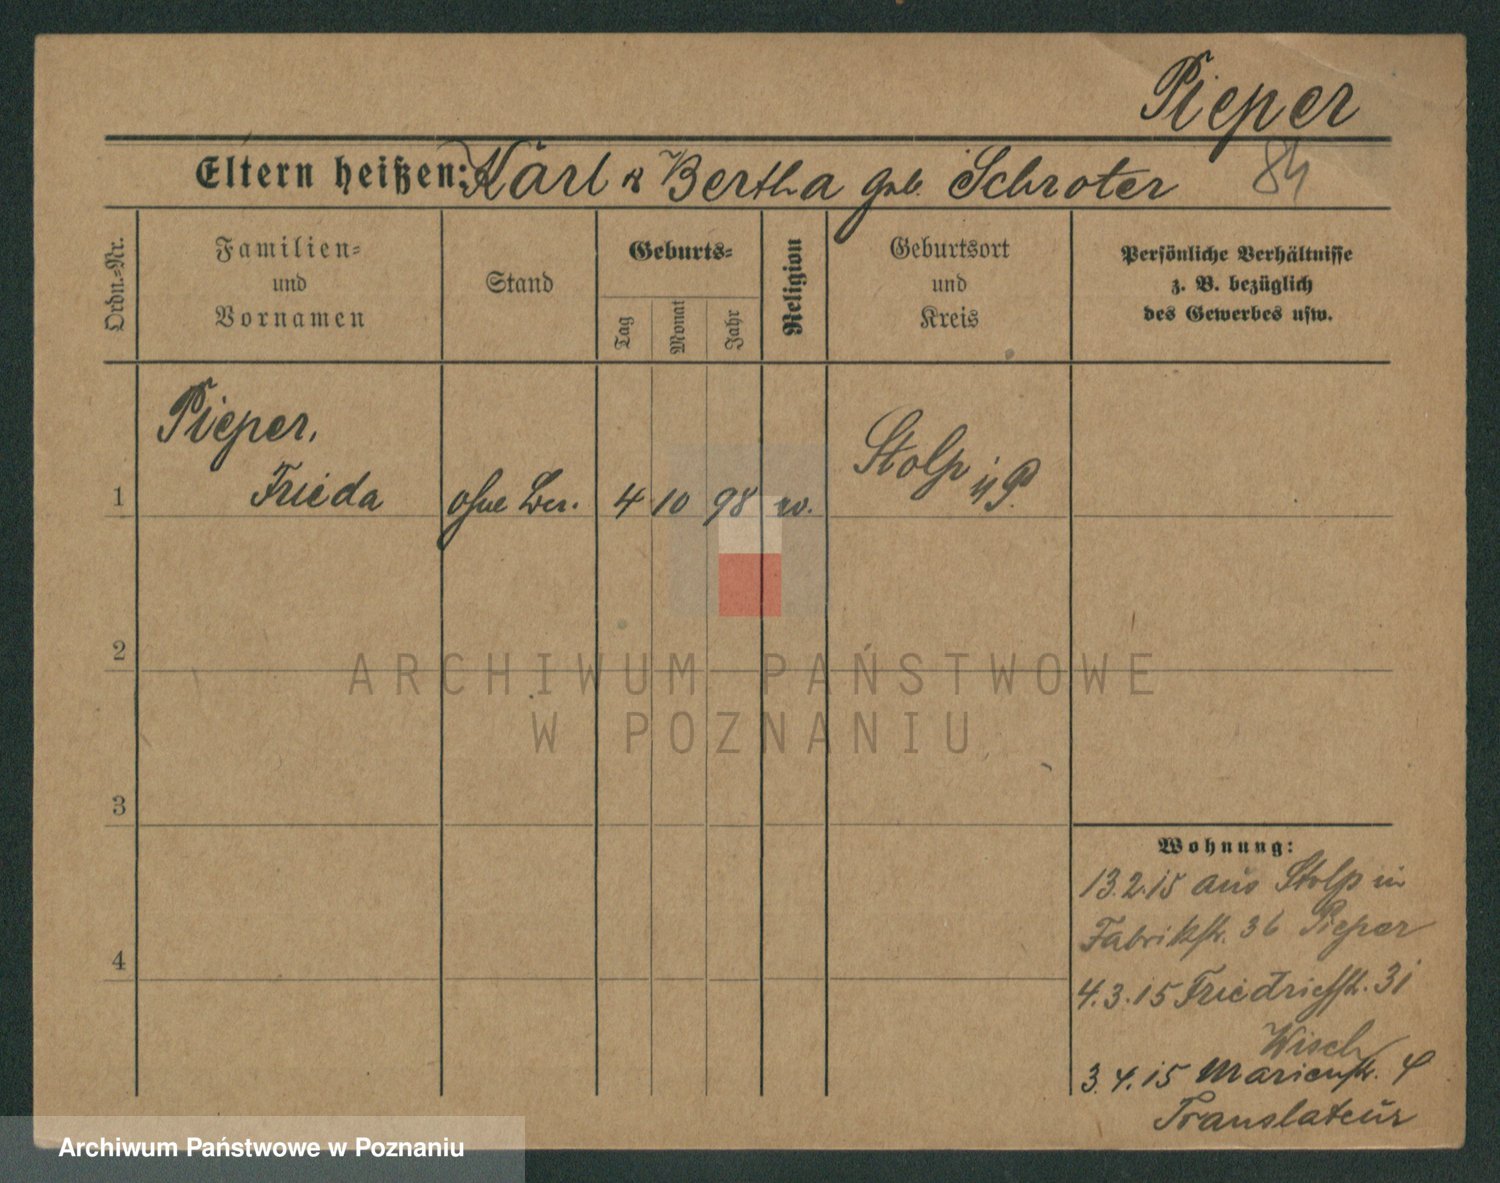 Pieper
Eltern heißen: Karl & Bertha geb. Schroter 84
Ordn.=Nr.
Familien=
und
Vornamen
Stand
Geburts=
Tag
Monat
Jahr
Religion
Geburtsort
und
Kreis
Persönliche Verhältnisse
z. B. bezüglich
des Gewerbes usw.
Pieper,
1 Frieda ohne 4 10 98 Stolp i/P.
2
3
4
Wohnung:
13.2.15 aus Stolp in
Fabrikstr. 36 Pieper
4.3.15 Friedrichstr. 31
Wisch
3.4.15 Marienstr. 4
Translateur
ARCHIWUM PAŃSTWOWE
W POZNANIU
Archiwum Państwowe w Poznaniu